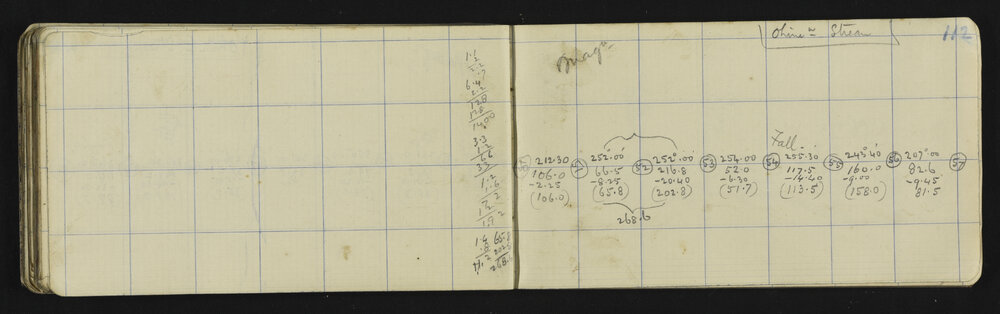 112
Stream
Magn
Fall
50 212.30 51 252°00' 52 252°00' 53 254.00 54 255.30 55 243°40 56 207°00 57
106.0 66.5 216.8 52.0 117.5 160.0 82.6
-2.25 -8.25 -20.40 -6.30 -14.40 -9.00 -9.45
(106.0) (65.8) (202.8) (51.7) (113.5) (158.0) 81.5
268.6
6.4
2.2
128
128
1400
3.3
1.2
66
33
1.2
1.6
7.2
1.2
1.9 2
1.4
.8
11.2
65.8
202.8
268.6